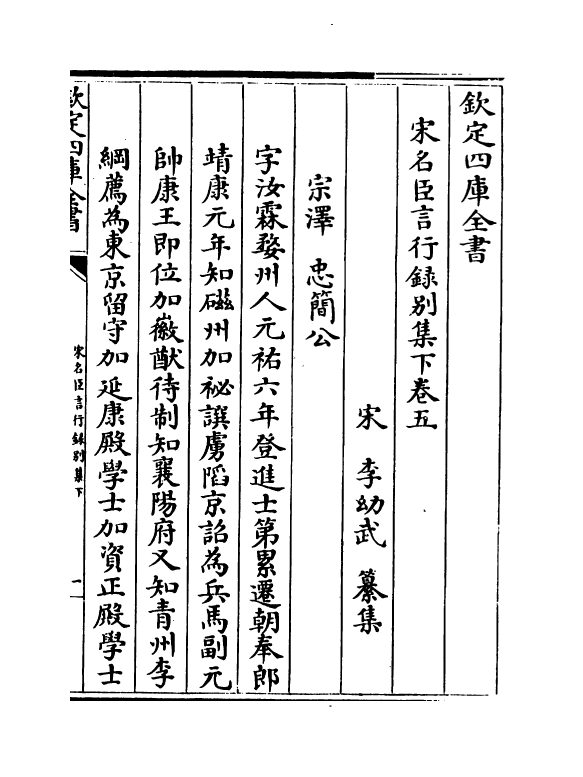 欽定四庫全書
宋名臣言行録别集下卷五
宋 李幼武 纂集
宗澤 忠簡公
字汝霖婺州人元祐六年登進士第累遷朝奉郎
靖康元年知磁州加祕譔虜䧟京詔為兵馬副元
帥康王即位加徽猷待制知襄陽府又知青州李
綱薦為東京留守加延康殿學士加資正殿學士
欽定四庫全書
宋名臣言行録别集下
一